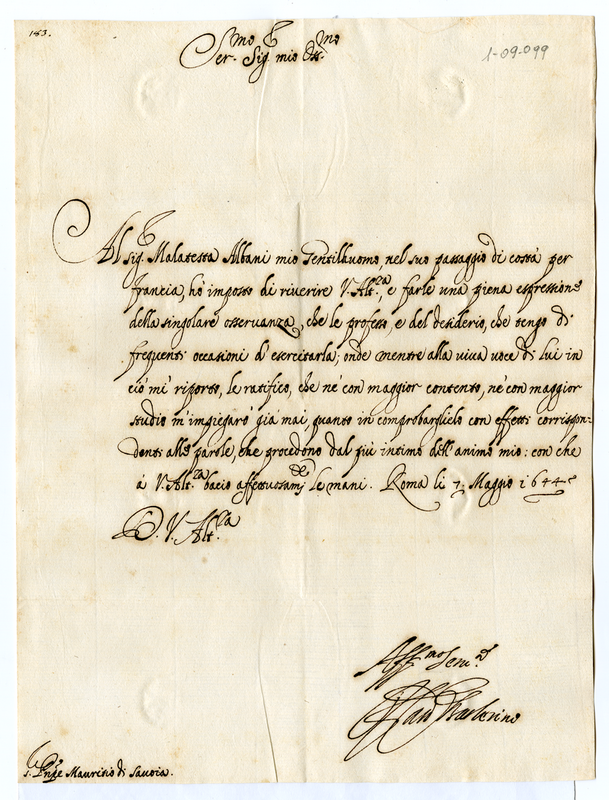 183.
1-09-099
Ser.mo Sig.r mio Oss.mo
Al Sig.r Malatesta Albani mio Gentilhuomo, nel suo passaggio di costà per
Francia, hò imposto di riverire V. Alt.za, e farle una piena espressione
della singolare osservanza, che le professo, e del desiderio, che tengo di
frequenti occasioni d'esercitarla; onde mentre alla viva voce di lui in
ciò mi riporto, le ratifico, che nè con maggior contento, nè con maggior
studio m'impiegarò già mai, quanto in comprobarglielo con effetti corrispon-
denti alle parole, che procedono dal più intimo dell'animo mio: con che
à V. Alt.za bacio affettuosam.te le mani. Roma li 7. Maggio 1644
D. V. Alt.za
Aff.mo Ser.re
Barberino
S. Pnpe Mauritio di Savoia.